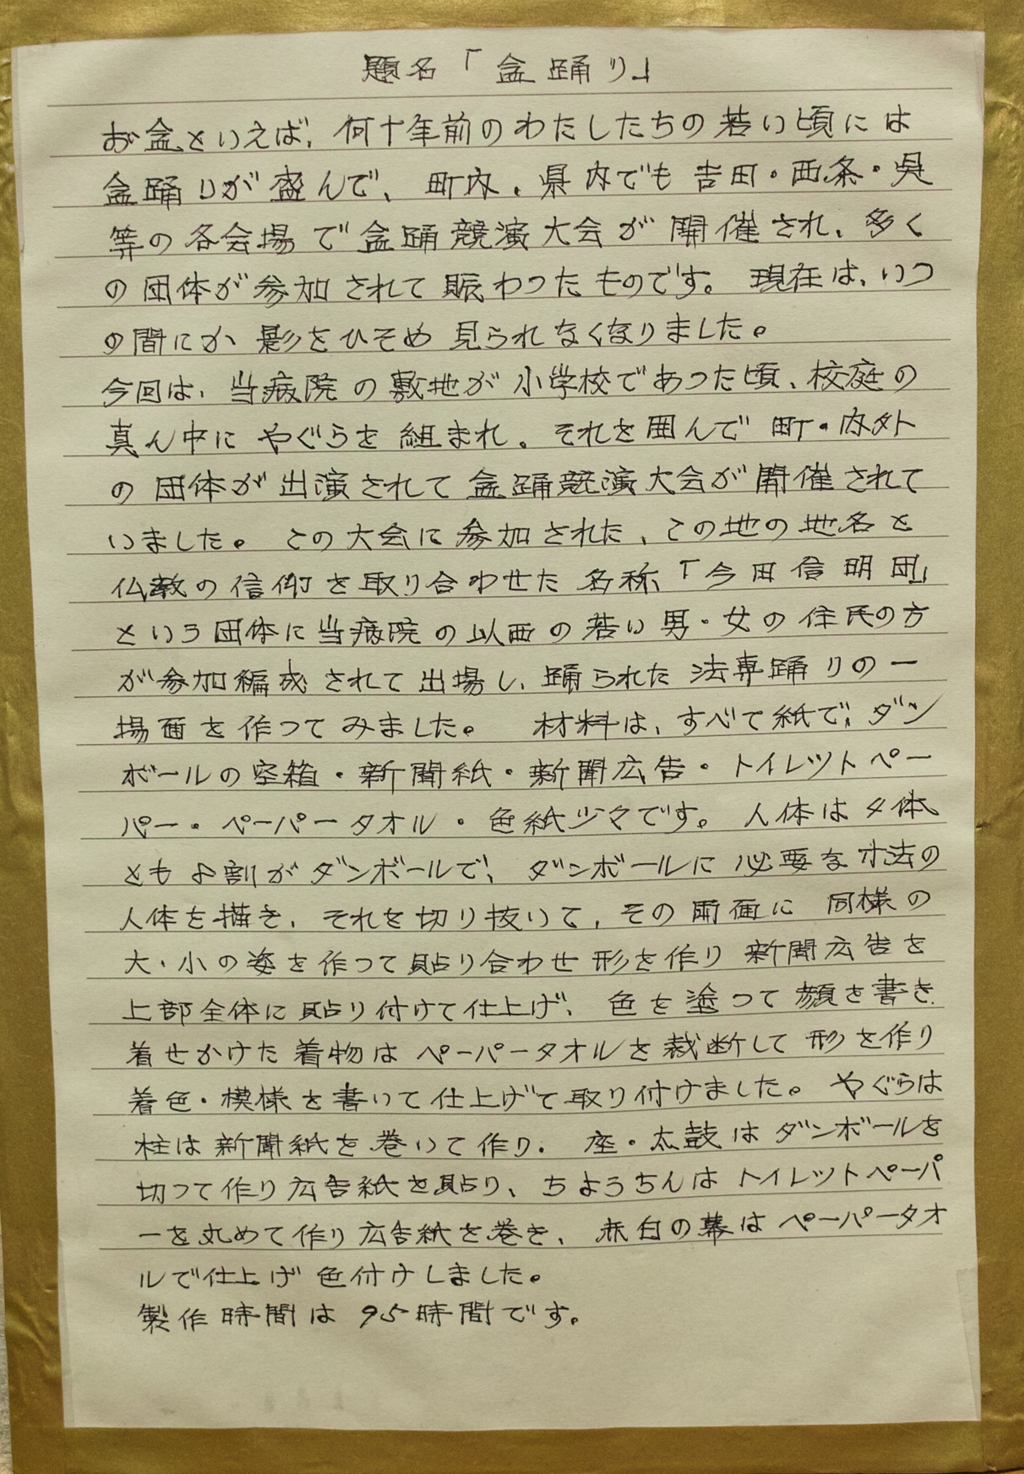 題名「盆踊り」
お盆といえば、何十年前のわたしたちの若い頃には
盆踊りが盛んで、町内、県内でも吉田・西条・呉
等の各会場で盆踊競演大会が開催され、多く
の団体が参加されて賑わったものです。現在は、いつ
の間にか影をひそめ見られなくなりました。
今回は、当病院の敷地が小学校であった頃、校庭の
真ん中にやぐらを組まれ、それを囲んで町・内外
の団体が出演されて盆踊競演大会が開催されて
いました。この大会に参加された、この地の地名と
仏教の信仰を取り合わせた名称「今田信明団」
という団体に当病院の以西の若い男・女の住民の方
が参加編成されて出場し、踊られた法専踊りの一
場面を作ってみました。材料は、すべて紙で、ダン
ボールの空箱・新聞紙・新聞広告・トイレットペー
パー・ペーパータオル・色紙少々です。人体は4体
とも8割がダンボールで、ダンボールに必要な寸法の
人体を描き、それを切り抜いて、その両面に同様の
大・小の姿を作って貼り合わせ形を作り新聞広告を
上部全体に貼り付けて仕上げ、色を塗って顔を書き
着せかけた着物はペーパータオルを裁断して形を作り
着色・模様を書いて仕上げて取り付けました。やぐらは
柱は新聞紙を巻いて作り、座・太鼓はダンボールを
切って作り広告紙を貼り、ちょうちんはトイレットペーパ
ーを丸めて作り広告紙を巻き、赤白の幕はペーパータオ
ルで仕上げ色付けしました。
製作時間は95時間です。